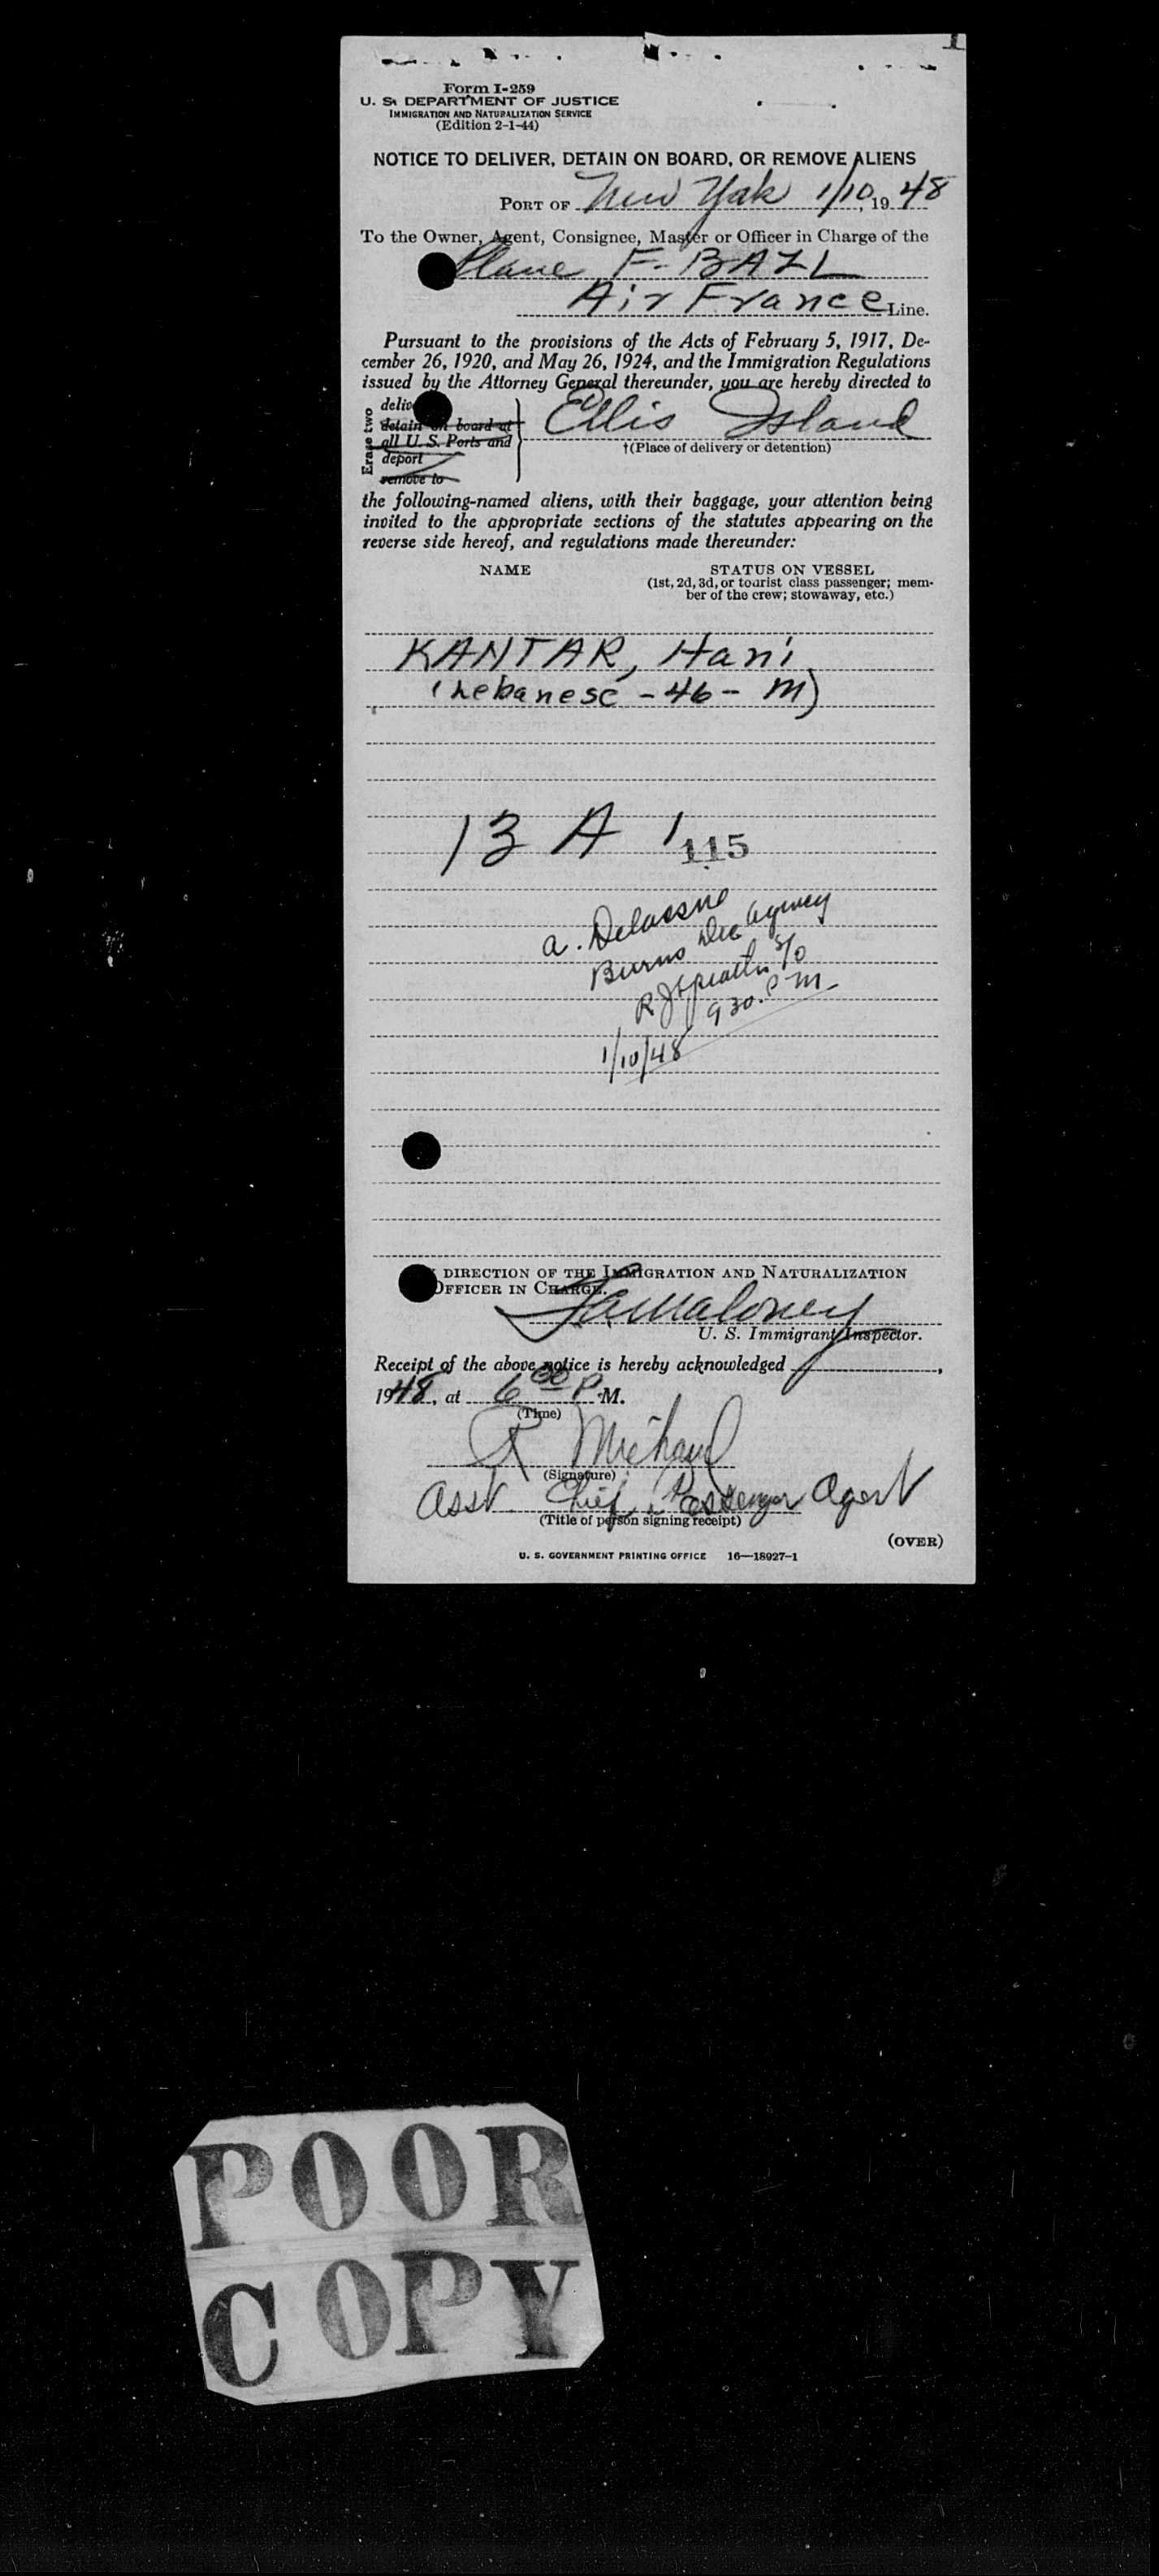 1
Form I-259
U. S. DEPARTMENT OF JUSTICE
IMMIGRATION AND NATURALIZATION SERVICE
(Edition 2-1-44)
NOTICE TO DELIVER, DETAIN ON BOARD, OR REMOVE ALIENS
PORT OF New York 1/10, 1948
To the Owner, Agent, Consignee, Master or Officer in Charge of the
Plane F-BAZL
Air France Line.
Pursuant to the provisions of the Acts of February 5, 1917, De-
cember 26, 1920, and May 26, 1924, and the Immigration Regulations
issued by the Attorney General thereunder, you are hereby directed to
Erase two
deliv
detain on board at
all U. S. Ports and
deport
remove to
Ellis Island
†(Place of delivery or detention)
the following-named aliens, with their baggage, your attention being
invited to the appropriate sections of the statutes appearing on the
reverse side hereof, and regulations made thereunder:
NAME STATUS ON VESSEL
(1st, 2d, 3d, or tourist class passenger; mem-
ber of the crew; stowaway, etc.)
KANTAR, Hani
(Lebanese - 46 - M)
13 A 1
115
a.
Burns Agency
930 P M
1/10/48
DIRECTION OF THE IMMIGRATION AND NATURALIZATION
OFFICER IN CHARGE.
Maloney
U. S. Immigrant Inspector.
Receipt of the above notice is hereby acknowledged ,
1948, at 6 00 P M.
(Time)
R Michaud
(Signature)
Asst. Chief Passenger Agent
(Title of person signing receipt)
(OVER)
U. S. GOVERNMENT PRINTING OFFICE 16—18927-1
POOR
COPY